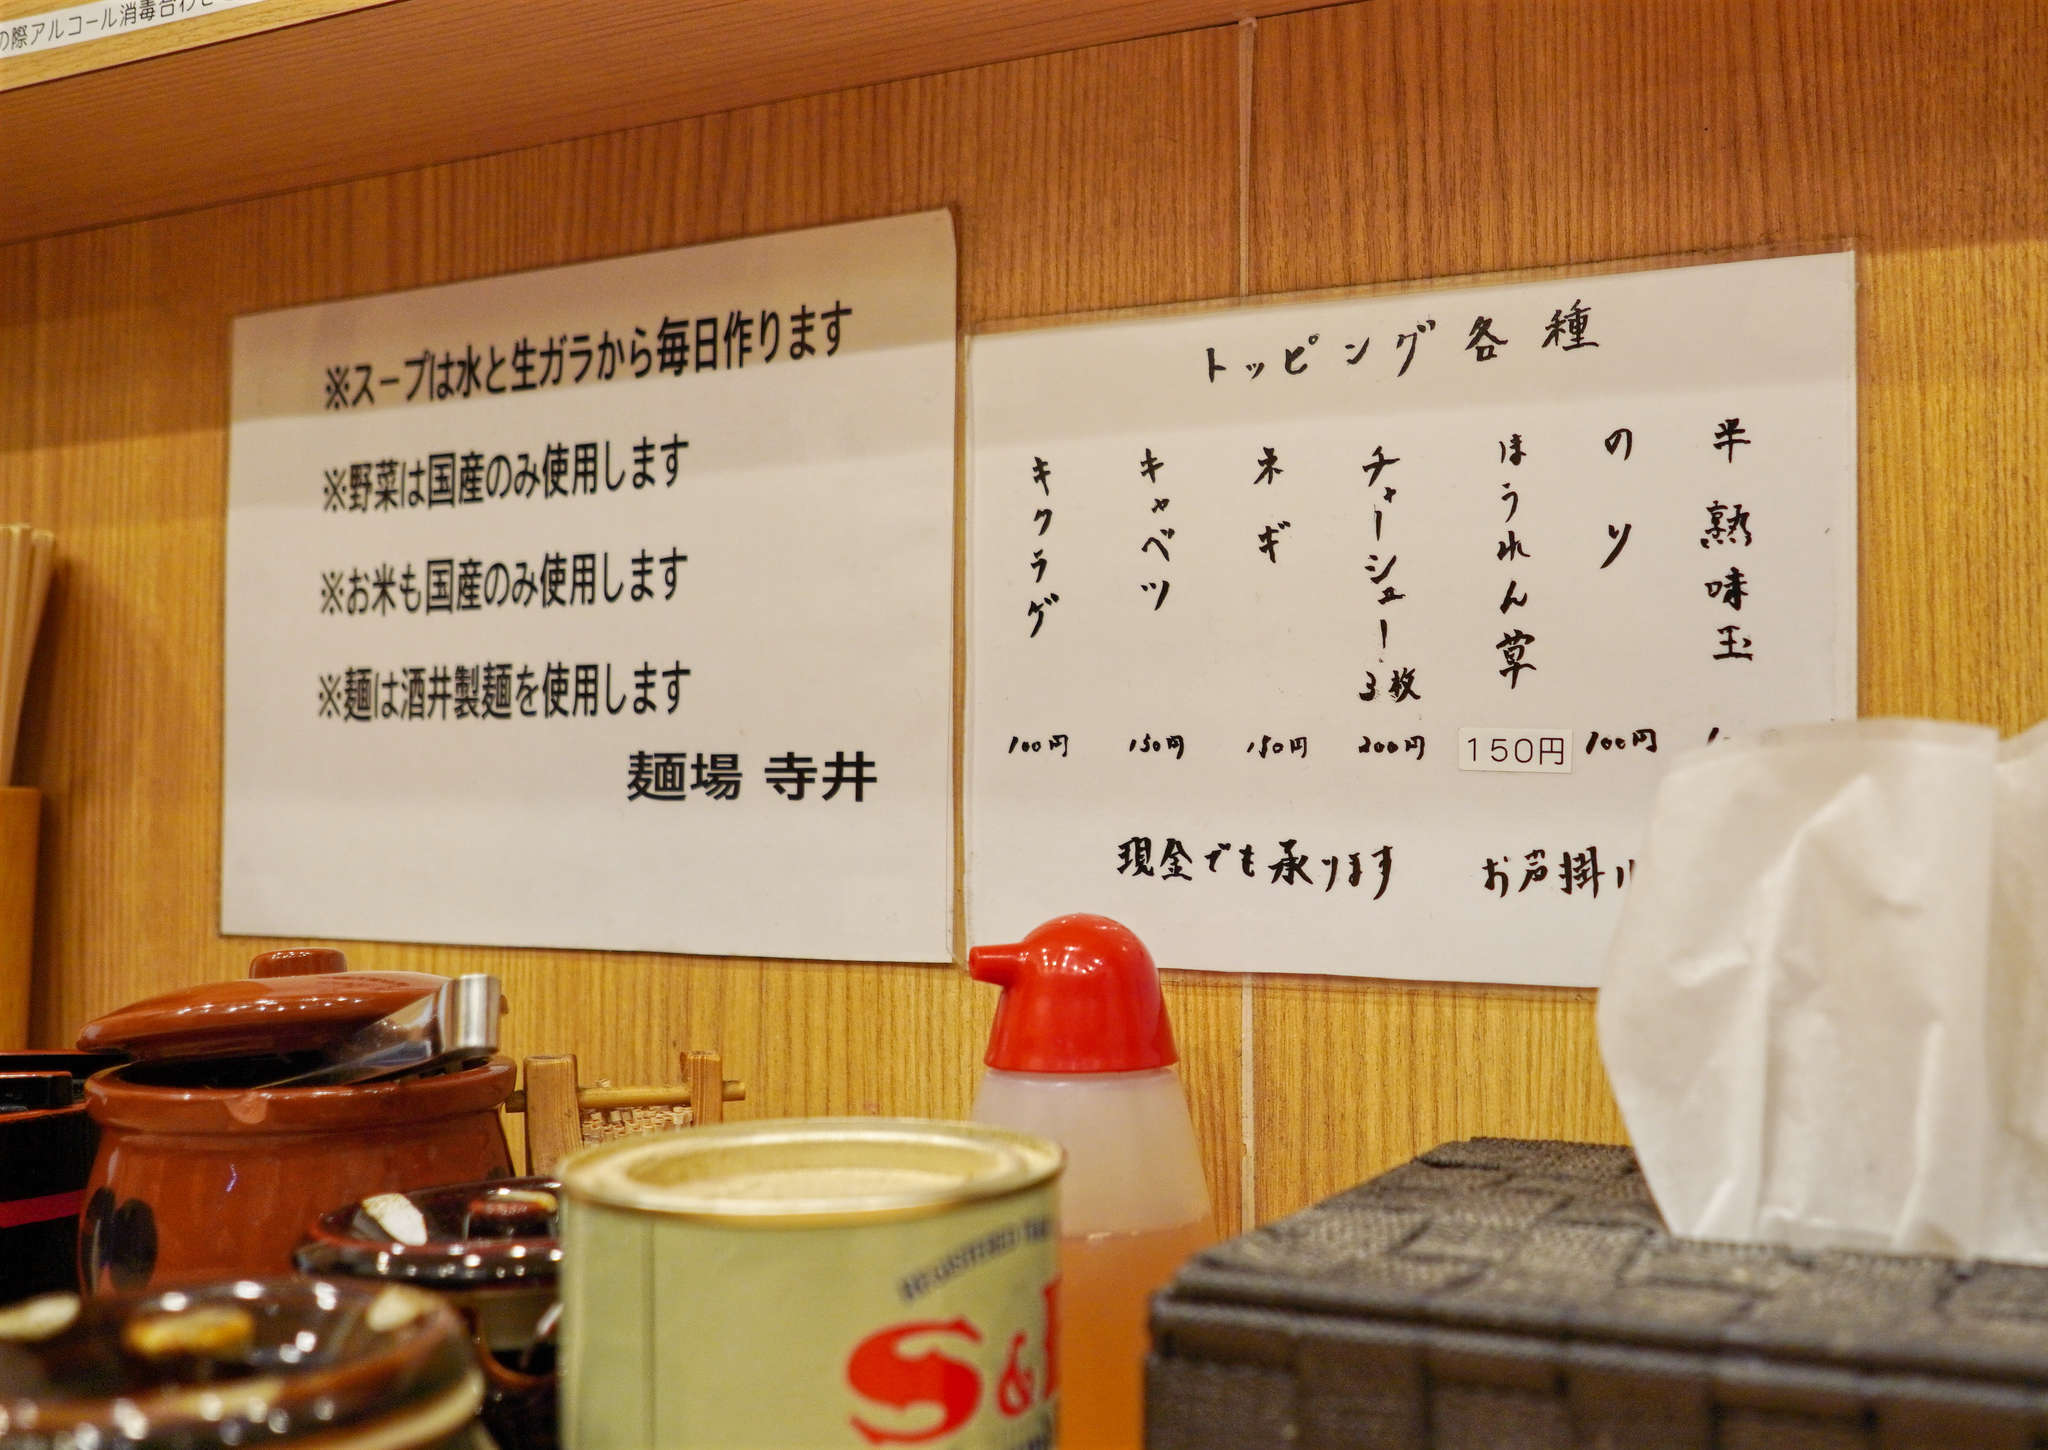 の際アルコール消毒合わせ
※スープは水と生ガラから毎日作ります
※野菜は国産のみ使用します
※お米も国産のみ使用します
※麺は酒井製麺を使用します
麺場 寺井
トッピング各種
半熟味玉
のり 100円
ほうれん草 150円
チャーシュー3枚 200円
ネギ 150円
キャベツ 150円
キクラゲ 100円
現金でも承ります お声掛け
REGISTERED
S&